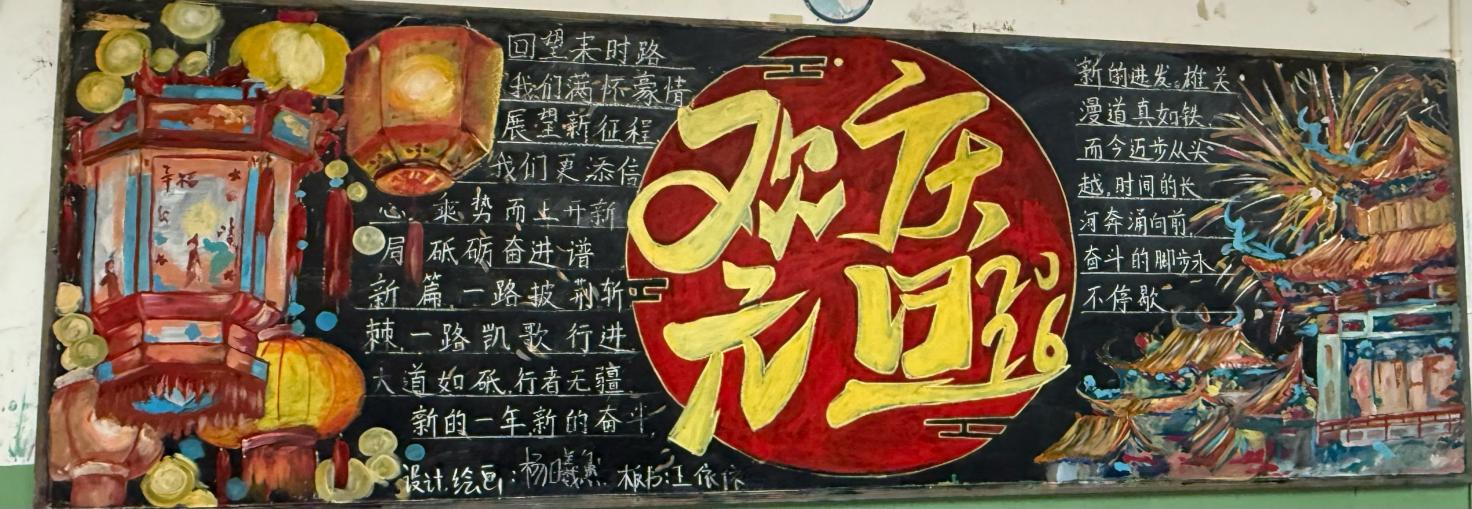 回望来时路
我们满怀豪情
展望新征程
我们更添信
心.乘势而上开新
局 砥砺奋进谱
新篇.一路披荆斩
棘.一路凯歌行进
大道如砥.行者无疆.
新的一年.新的奋斗,
设计.绘画:杨曦 板书:王依
欢庆
元旦
2026
新的进发.雄关
漫道真如铁,
而今迈步从头
越.时间的长
河奔涌向前,
奋斗的脚步永
不停歇.
幸福